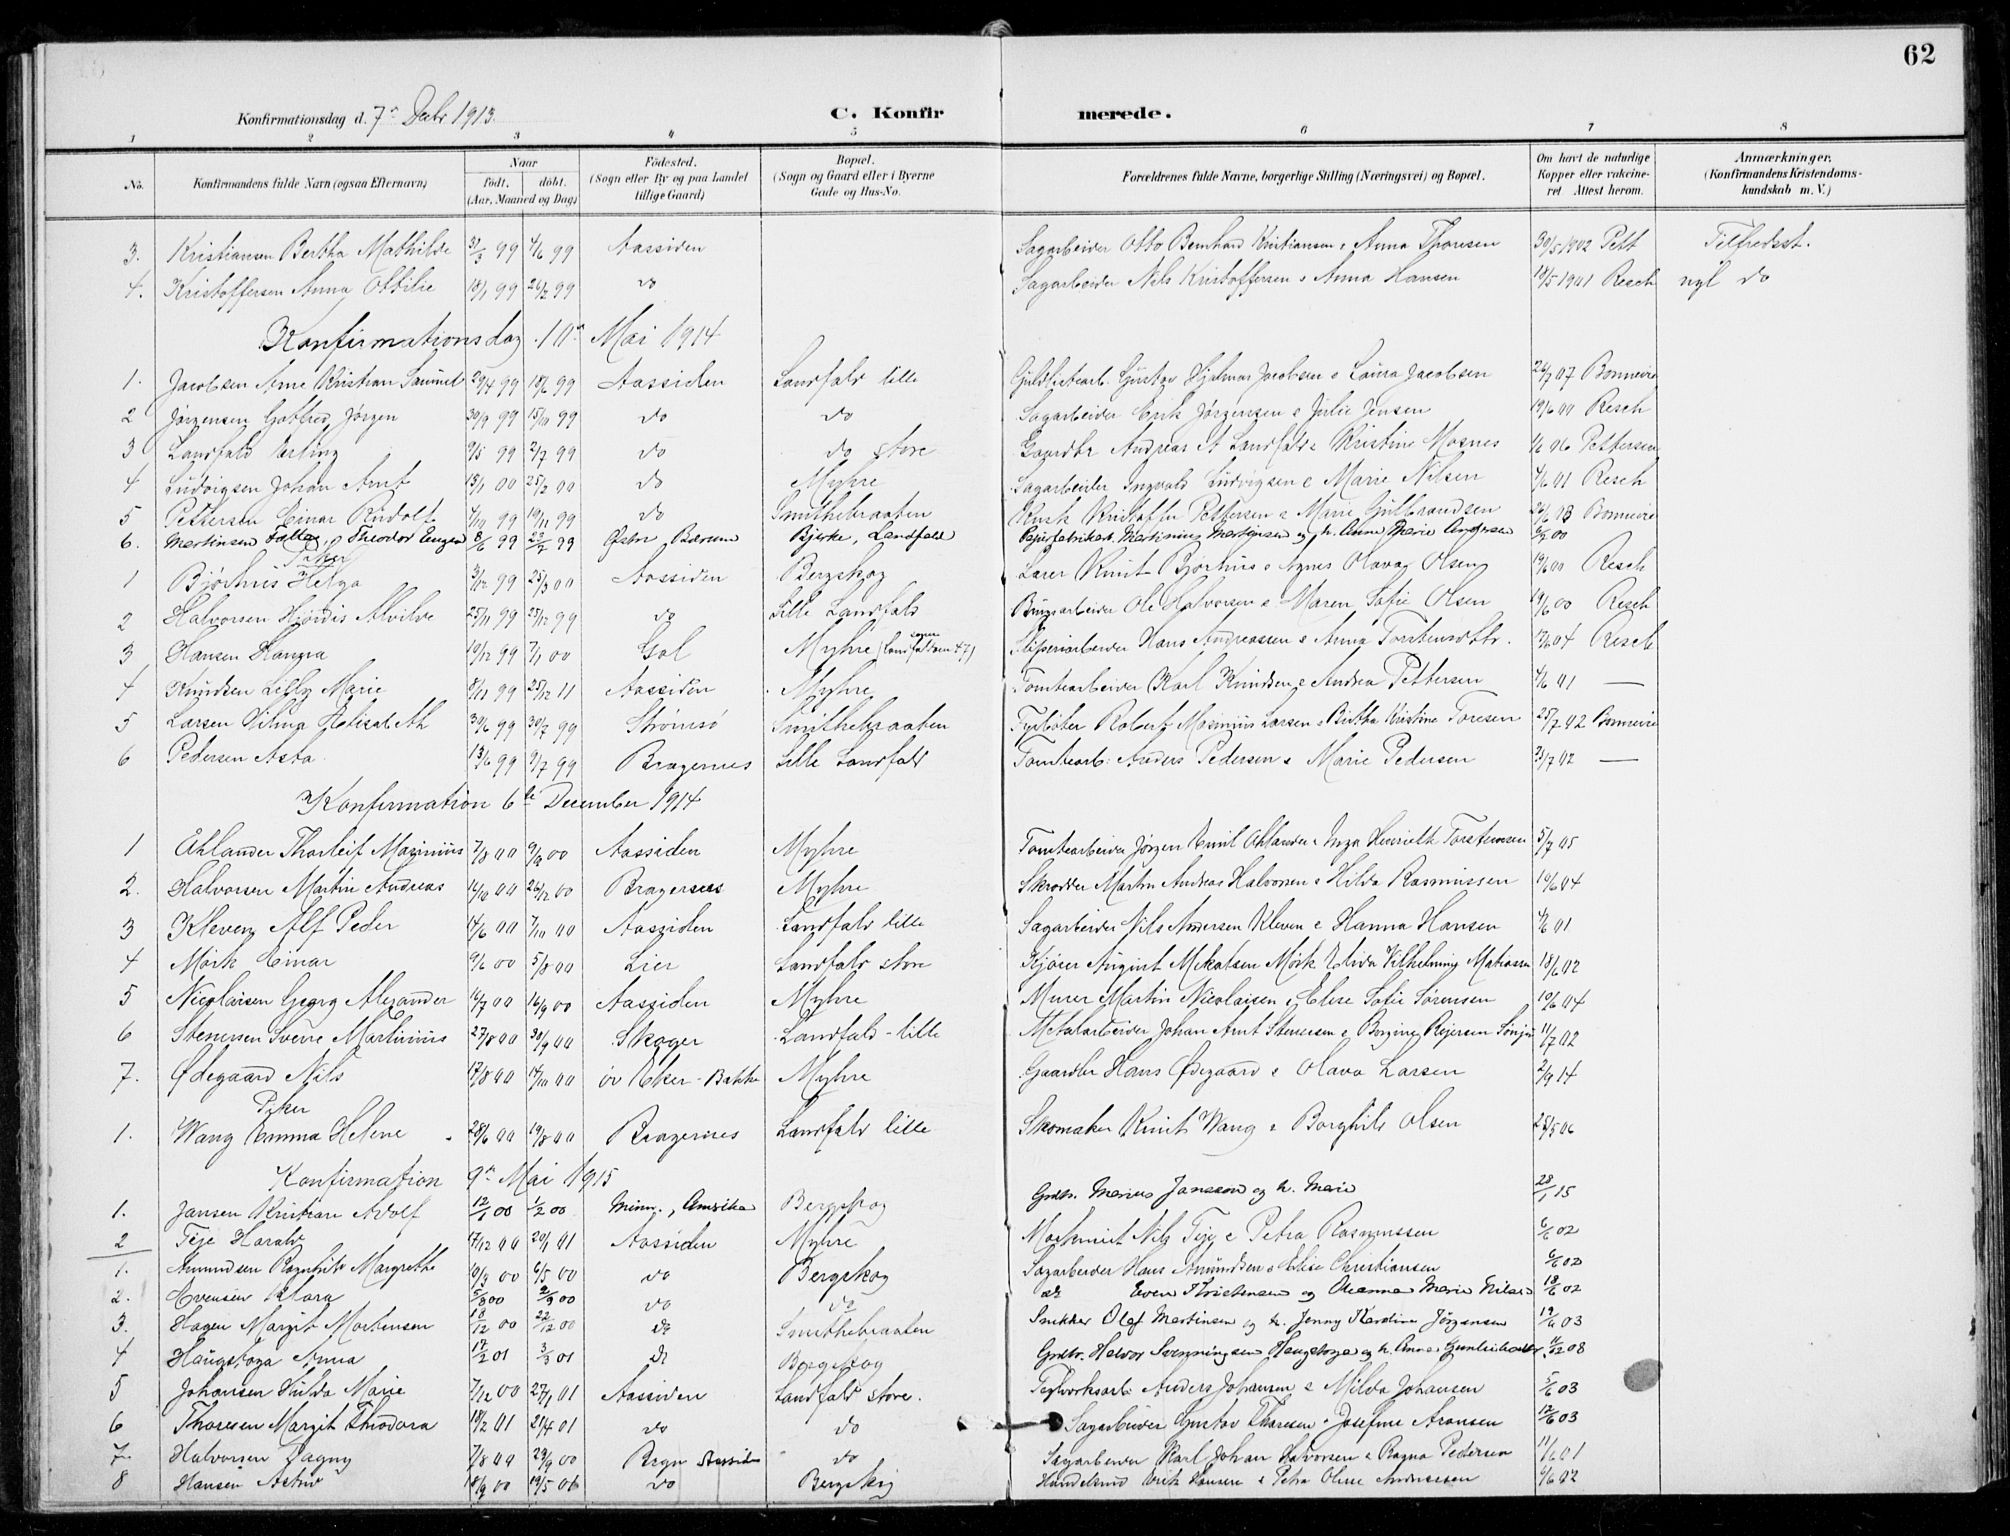 62
Konfirmationsdag d. 7de Decbr 1913. C. Konfirmerede.
1 2 3 4 5 6 7 8
No. Konfirmandens fulde Navn (ogsaa Efternavn) Naar født. døbt. (Aar, Maaned og Dag) Fødested. (Sogn eller By og paa Landet tillige Gaard) Bopæl. (Sogn og Gaard eller i Byerne Gade og Hus-No. Forældrenes fulde Navne, borgerlige Stilling (Næringsvei) og Bopæl. Om havt de naturlige Kopper eller vakcineret. Attest herom. Anmærkninger. (Konfirmandens Kristendomskundskab m. V.)
3. Kristiansen Bertha Mathilde 31/3 99 4/6 99 Aassiden Sagarbeider Otto Bernhard Kristiansen o Anna Thoresen 30/5 1902 Pett Tilfredsst.
4. Kristoffersen Anna Ottilie 18/1 99 26/2 99 do Sagarbeider Nils Kristoffersen o Anna Hansen 18/5 1901 Resch ngl do
Konfirmationsdag 10de Mai 1914
1. Jacobsen Arne Kristian Samuel 29/4 99 18/6 99 Aassiden Landfald lille Guldlistearb. Gustav Hjalmar Jacobsen o Laura Jacobsen 26/7 07 Bonnevie
2 Jørgensen Gotfred Jørgen 30/9 99 15/10 99 do do Sagarbeider Erik Jørgensen o Julie Jensen 19/6 00 Resch
3 Landfald Erling 9/5 99 2/7 99 do do store Gaardbr Andreas A Landfald o Kristine Mosnes 1/6 06 Pettersen
4 Ludvigsen Johan Arnt 15/1 00 25/2 00 do Myhre Sagarbeider Ingvald Ludvigsen o Marie Nilsen 4/6 01 Resch
5 Pettersen Einar Rudolf 4/10 99 19/11 99 do Smithebraaten Kusk Kristoffer Pettersen o Marie Gulbrandsen 26/6 03 Bonnevie
6. Martinsen Theodor Eugen 8/6 99 23/7 99 Østre Bærum Bjerke, Landfald Papirfabrikarb. Martinius Martinsen og h. Anne Marie Andersen 6/5 00
Piker
1 Bjørhus Helga 3/12 99 25/3 00 Aassiden Bergskog Lærer Knut Bjørhus o Agnes Olava Olsen 19/6 00 Resch
2 Halvorsen Hjørdis Alvilde 25/11 99 25/12 99 do Lille Landfald Brugsarbeider Ole Halvorsen o Maren Sofie Olsen 19/6 00 Resch
3 Hansen Hanna 10/12 99 7/1 00 Gol Myhre (Landfaldsøen 47) Sliperiarbeider Hans Andreassen o Anna Torstensdttr. 17/6 04 Resch
4 Knudsen Lilly Marie 8/11 99 25/12 11 Aassiden Myhre Tomtearbeider Karl Knudsen o Andrea Pettersen 4/6 01 —
5 Larsen Vilma Elisabeth 30/6 99 30/7 99 Strømsø Smithebraaten Fyrbøter Robert Maximius Larsen o Birtha Kristine Toresen 25/7 02 Bonnevie
6 Pedersen Asta 13/6 99 9/7 99 Bragernes Lille Landfald Tomtearb: Anders Pedersen o Marie Pedersen 23/7 02 —
Konfirmation 6te December 1914
1 Ahlander Thorleif Maximius 7/8 00 9/9 00 Aassiden Myhre Tomtearbeider Jørgen Emil Ahlander o Inga Henriette Torstensen 5/7 05
2. Halvorsen Martin Andreas 14/10 00 26/12 00 Bragernes Myhre Skrædder Martin Andreas Halvorsen o Hilda Rasmussen 10/6 04
3 Kleven Alf Peder 14/6 00 7/10 00 Aassiden Landfald lille Sagarbeider Nils Andersen Kleven o Hanna Hansen 4/6 01
4 Mørk Einar 9/6 00 5/8 00 Lier Landfald store Kjører August Mikalsen Mørk 18/6 02
5 Nicolaisen Georg Alexander 16/7 00 16/9 00 Aassiden Myhre Murer Martin Nicolaisen o Elise Sofie Sørensen 10/6 04
6 Stenersen Sverre Martinius 27/8 00 30/9 00 Skoger Landfald - lille Metalarbeider Johan Arnt Stenersen o 11/7 02
7. Ødegaard Nils 17/8 00 14/10 00 øv Eker - Bakke Myhre Gaardbr Hans Ødegaard o Olava Larsen 2/9 14
Piker
1. Wang Emma Helene 28/6 00 19/8 00 Bragernes Landfald lille Skomaker Knut Wang o Borghild Olsen 23/5 06
Konfirmation 9de Mai 1915
1. Jansen Kristian Adolf 12/1 00 1/2 00 Minn., Amerika Bergskog Grdbr. Marius Jansen og h. Marie 28/1 15
2 Teje Harald 17/12 00 20/1 01 Aassiden Myhre Maskinist Nils Teje o Petra Rasmussen 6/6 02
1. Amundsen Ragnhild Margrethe 10/3 00 6/5 00 do Bergskog Sagarbeider Hans Amundsen o Elise Christiansen 6/6 02
2. Evensen Klara 5/8 00 2/9 00 do do do Even Kristensen og Oleanna Marie Nilsen 18/6 02
3. Hagen Margit Mortensen 18/12 00 22/12 00 do Smithebraaten Snekker Olaf Martinsen og h. Jenny Karoline Jørgensen 19/6 03
4 Haugstoga Anna 17/2 01 3/3 01 do Bergskog Grdbr. Halvor Svenningsen Haugstoga og h. Anne 11/12 08
5 Johansen Hilda Marie 7/12 00 27/1 01 Aassiden Landfald store. Teglverksarb. Anders Johansen o Milda Johansen 5/6 03
6 Thoresen Margit Theodora 18/2 01 21/4 01 do do Sagarbeider Gustav Thoresen o Josefine Aronsen 12/6 03
7. Halvorsen Dagny 7/8 00 23/9 00 Bragn Aassid do Sagarbeider Karl Johan Halvorsen o Ragna Pedersen 11/6 01
8 Hansen Astrid 18/9 00 19/5 06 do Bergskog Handelsmd Hansen o Petra Oline Andreassen 4/6 02